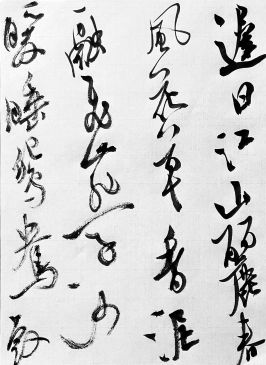 遲日江山麗春
風花草香泥
融飛燕子沙
暖睡鴛鴦